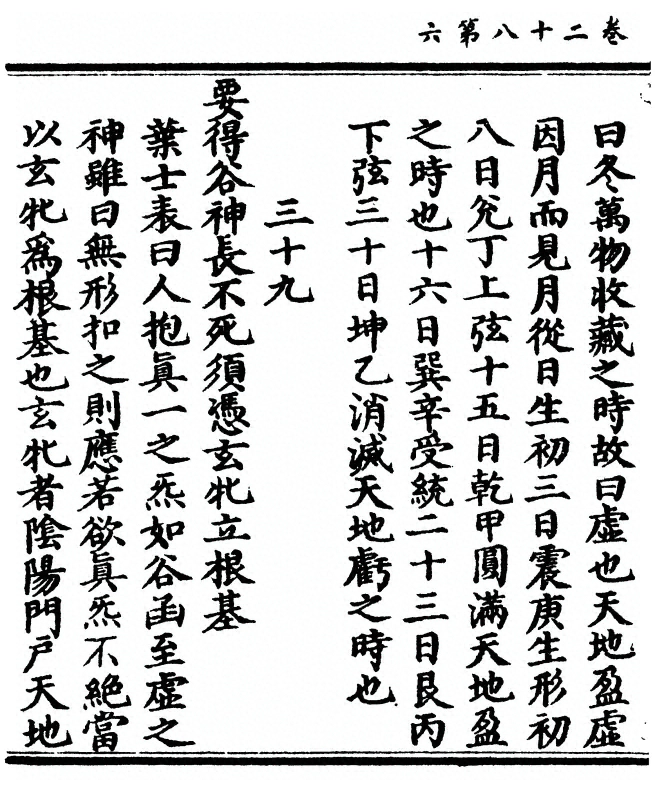 卷二十八第六
曰冬萬物收藏之時故曰虛也天地盈虛
因月而見月從日生初三日震庚生形初
八日兌丁上弦十五日乾甲圓滿天地盈
之時也十六日巽辛受統二十三日艮丙
下弦三十日坤乙消滅天地虧之時也
三十九
要得谷神長不死須憑玄牝立根基
葉士表曰人抱眞一之炁如谷函至虛之
神雖曰無形扣之則應若欲眞炁不絕當
以玄牝爲根基也玄牝者陰陽門戶天地